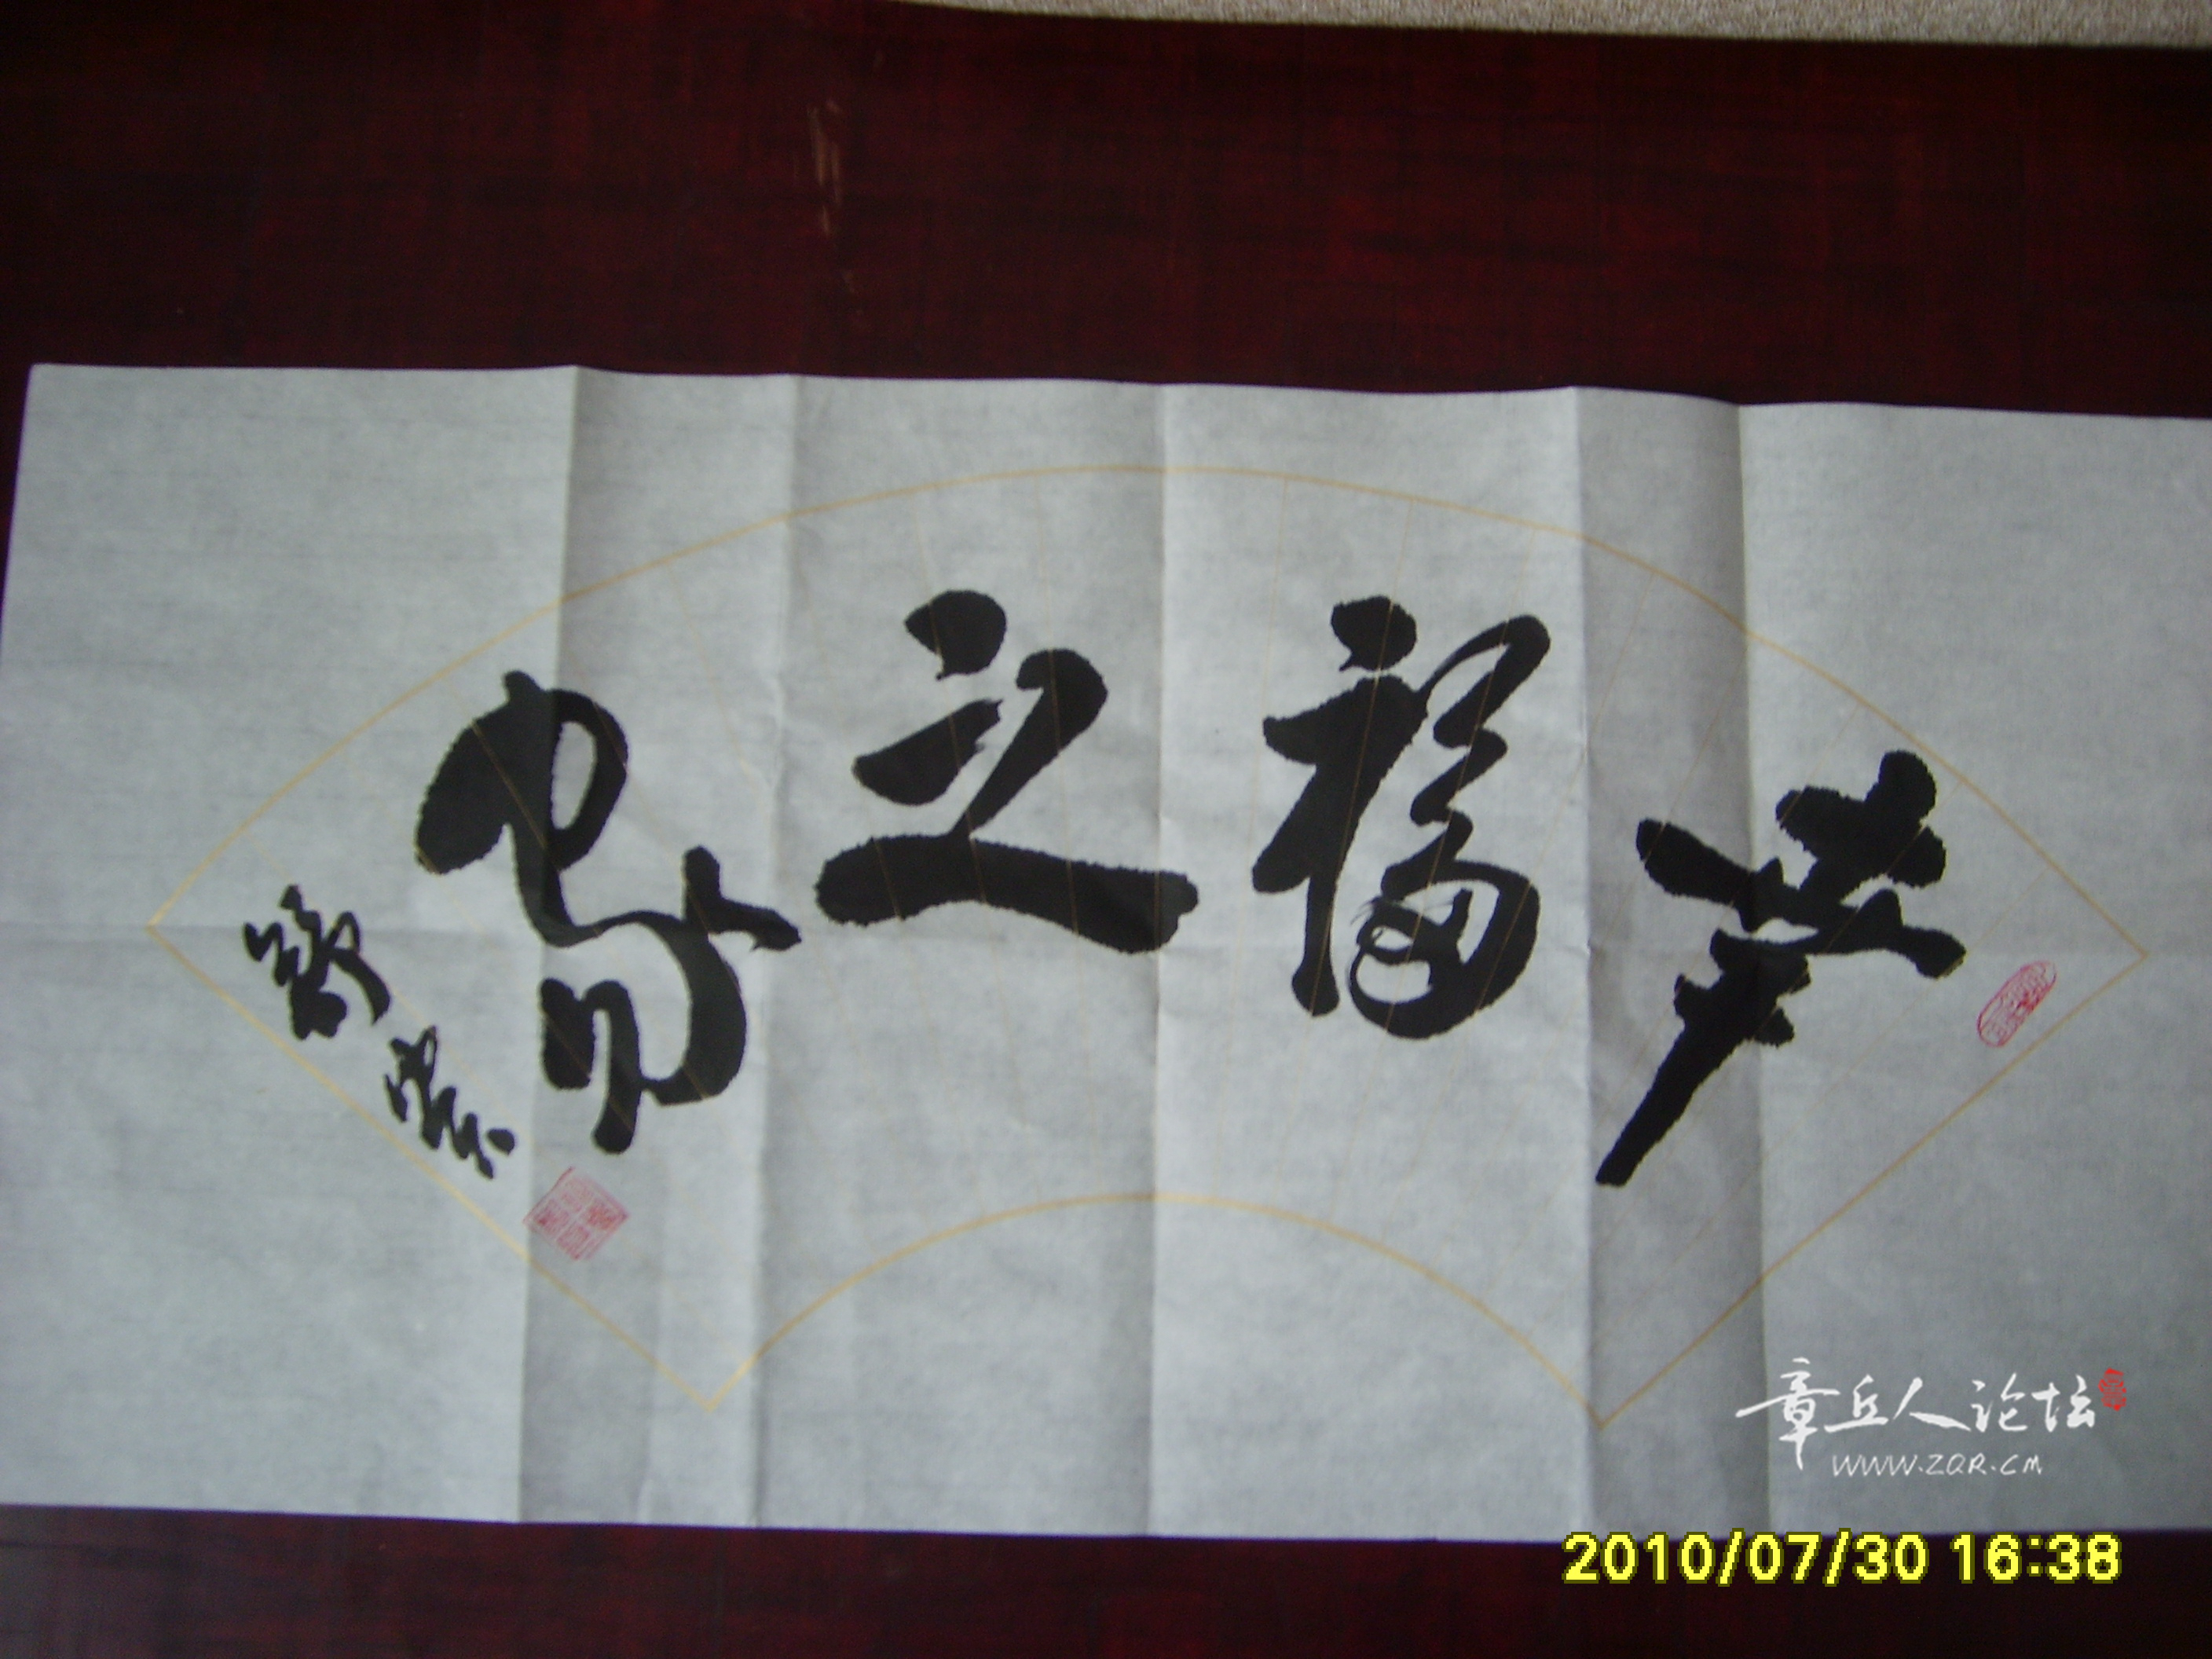 华福之家
舒宗
章丘人论坛
WWW.ZQR.CM
2010/07/30 16:38